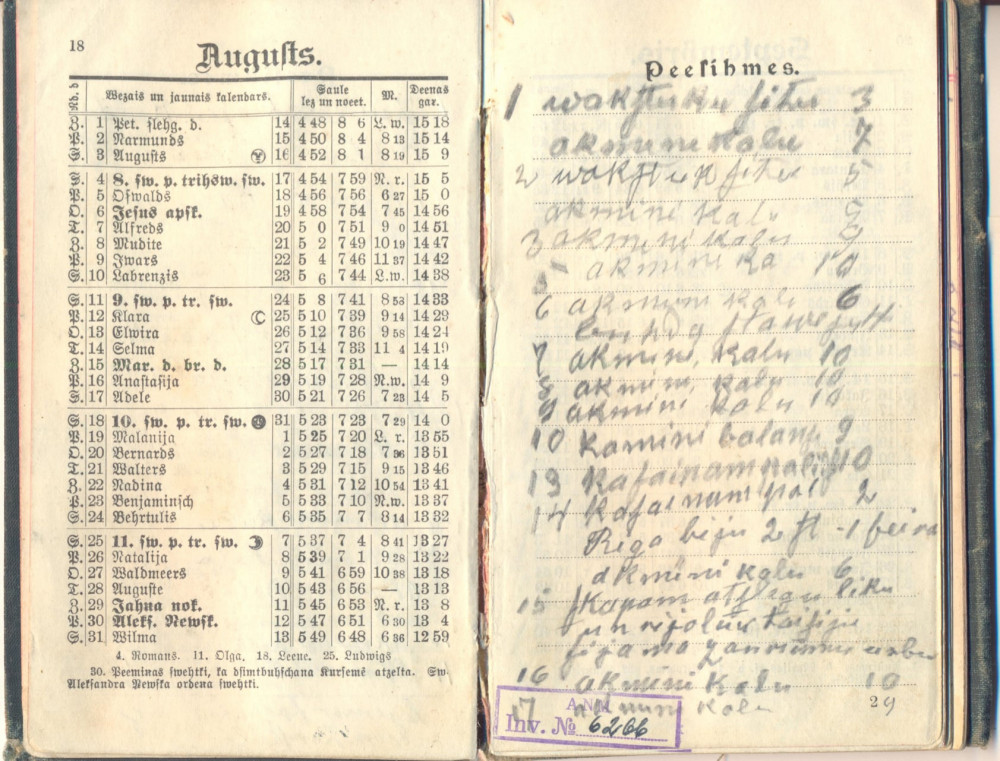 18
Augusts.
Ab. d Wezais un jaunais kalendars. Saule lez un noeet. M. Deenas gar.
Z. 1 Pet. slehg. d. 14 4 48 8 6 L. w. 15 18
P. 2 Narmunds 15 4 50 8 4 8 13 15 14
S. 3 Augusts 16 4 52 8 1 8 19 15 9
S. 4 8. sw. p. trihsw. sw. 17 4 54 7 59 N. r. 15 5
P. 5 Oswalds 18 4 56 7 56 6 27 15 0
O. 6 Jesus apsk. 19 4 58 7 54 7 45 14 56
T. 7 Alfreds 20 5 0 7 51 9 0 14 51
Z. 8 Mudite 21 5 2 7 49 10 19 14 47
P. 9 Iwars 22 5 4 7 46 11 37 14 42
S. 10 Labrenzis 23 5 6 7 44 L.w. 14 38
S. 11 9. sw. p. tr. sw. 24 5 8 7 41 8 53 14 33
P. 12 Klara 25 5 10 7 39 9 14 14 29
O. 13 Elwira 26 5 12 7 36 9 58 14 24
T. 14 Selma 27 5 14 7 33 11 4 14 19
Z. 15 Mar. d. br. d. 28 5 17 7 31 — 14 14
P. 16 Anastasija 29 5 19 7 28 N.w. 14 9
S. 17 Adele 30 5 21 7 26 7 23 14 5
S. 18 10. sw. p. tr. sw. 31 5 23 7 23 7 29 14 0
P. 19 Malanija 1 5 25 7 20 L. r. 13 55
O. 20 Bernards 2 5 27 7 18 7 36 13 51
T. 21 Walters 3 5 29 7 15 9 15 13 46
Z. 22 Nadina 4 5 31 7 12 10 54 13 41
P. 23 Benjaminsch 5 5 33 7 10 N.w. 13 37
S. 24 Behrtulis 6 5 35 7 7 8 14 13 32
S. 25 11. sw. p. tr. sw. 7 5 37 7 4 8 41 13 27
P. 26 Natalija 8 5 39 7 1 9 28 13 22
O. 27 Waldmeers 9 5 41 6 59 10 38 13 18
T. 28 Auguste 10 5 43 6 56 — 13 13
Z. 29 Jahna nok. 11 5 45 6 53 N. r. 13 8
P. 30 Aleks. Newsk. 12 5 47 6 51 6 30 13 4
S. 31 Wilma 13 5 49 6 48 6 36 12 59
4. Romans. 11. Olga. 18. Leene. 25. Ludwigs
30. Peeminas swehtki, ka dsimtbuhschana Kursemē atzelta. Sw.
Aleksandra Newska ordena swehtki.
Peesihmes.
1 wakstuku situ 3
akmini kalu 7
2 situ 5
akmini kalu
3 akmini kalu
5 akmini ka 10
6 akmini kalu 6
7 akmini kalu 10
8 akmini kalu 10
9 akmini kalu 10
10 kamini 9
13 10
14 2
Riga biju 2 st - 1
akmini kalu 6
15 atslegu liku
un taisiju
16 akmini kalu 10
17 akmini kalu
29
A.N.M.
Inv. № 6266